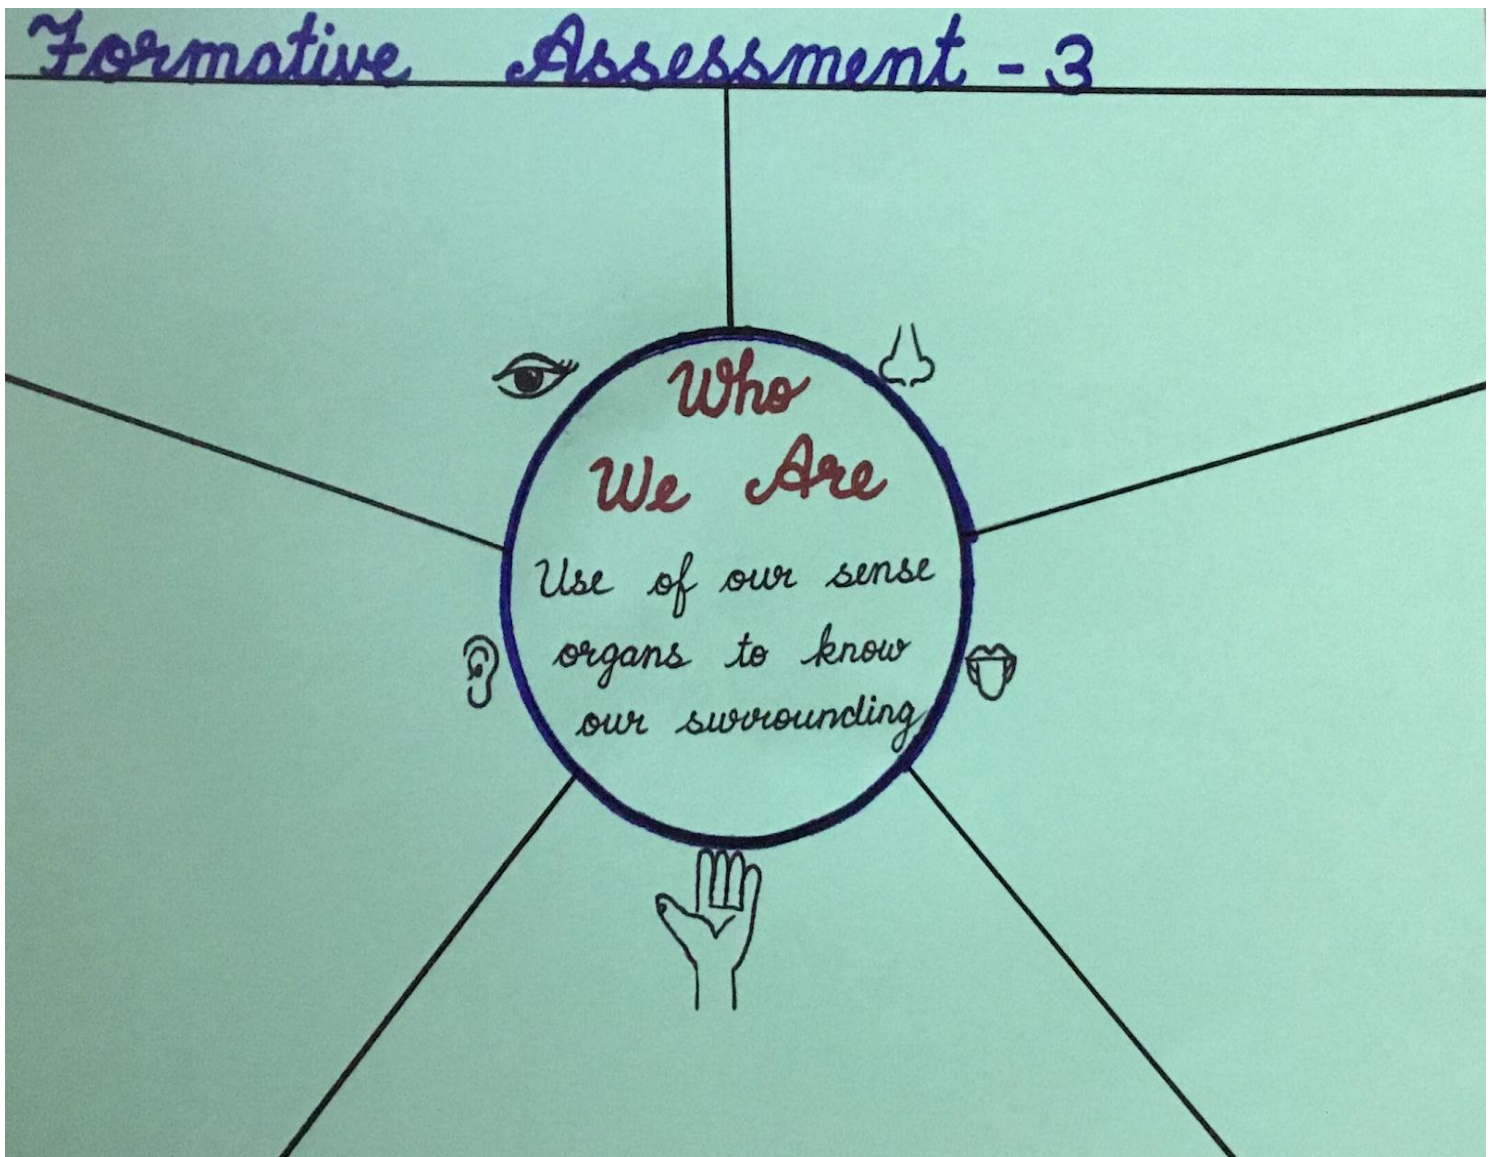 Formative Assessment - 3
Who
We Are
Use of our sense
organs to know
our surrounding